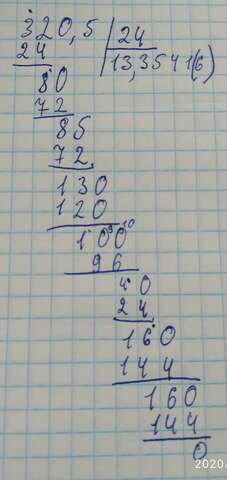 320,5 24
24 13,3541(6)
80
72
85
72
130
120
100 10
96
40
24
160
144
160
144
0
2020/